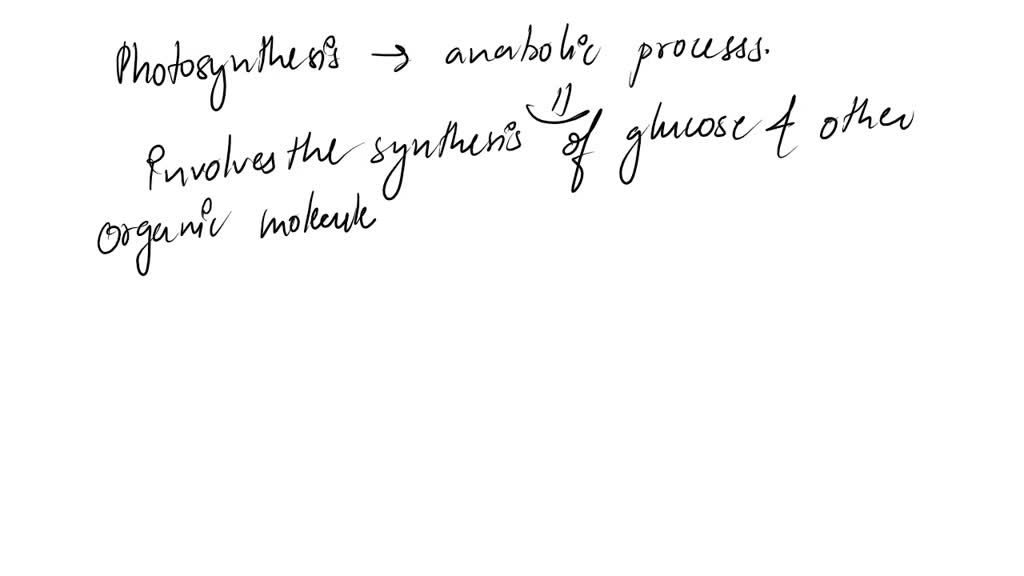 Photosynthesis → anabolic processs.
Involves the synthesis of glucose & other
organic molecule